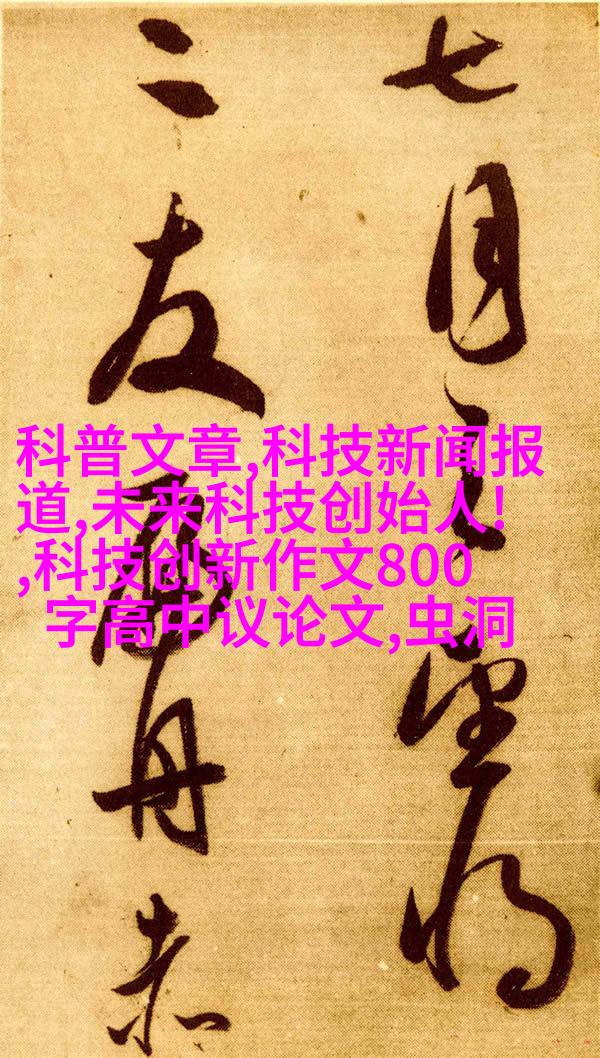 七月之望将
二友舟赤
科普文章,科技新闻报
道,未来科技创始人!
,科技创新作文800
字高中议论文,虫洞